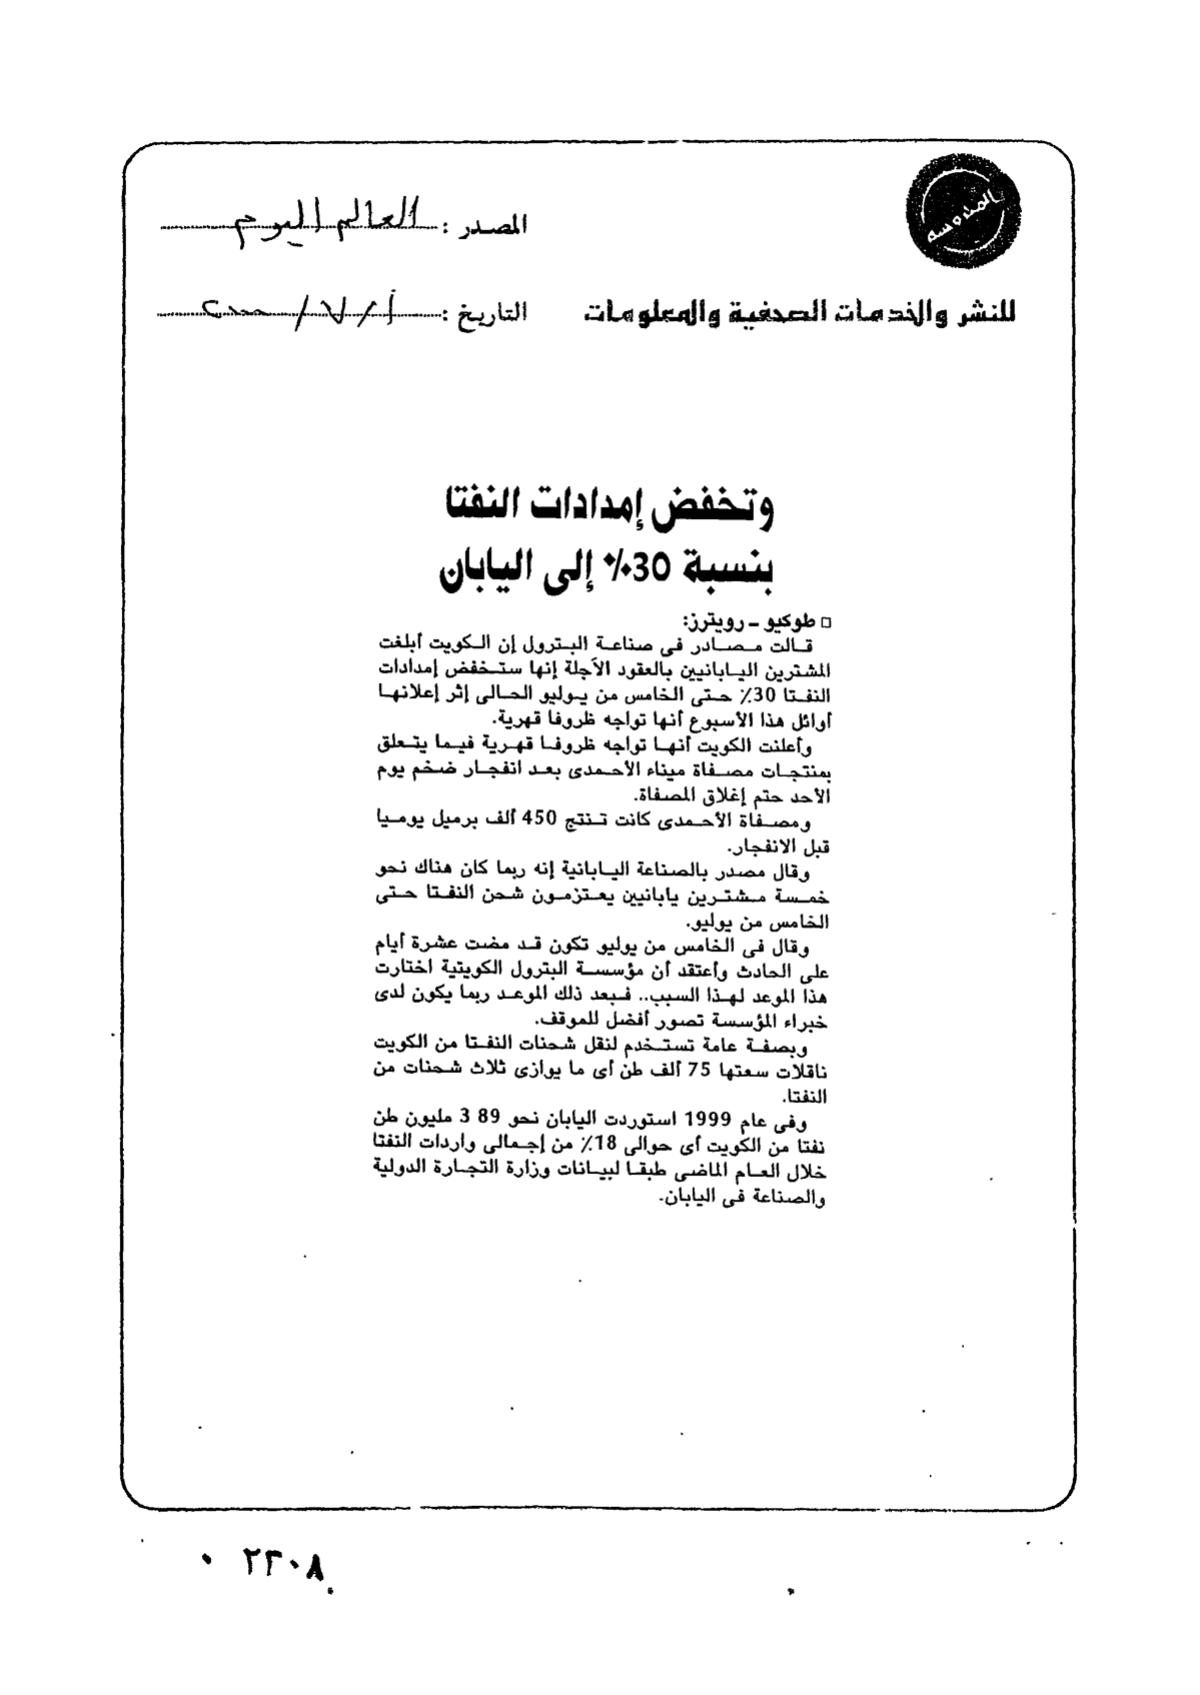 المدوسه
المصدر : العالم اليوم
للنشر والخدمات الصحفية والمعلومات
التاريخ : ١ / ٧ / ٢٠٠٠
وتخفض إمدادات النفتا
بنسبة 30٪ إلى اليابان
□ طوكيو - رويترز:
قالت مصادر فى صناعة البترول إن الكويت أبلغت
المشترين اليابانيين بالعقود الآجلة إنها ستخفض إمدادات
النفتا 30٪ حتى الخامس من يوليو الحالى إثر إعلانها
أوائل هذا الأسبوع أنها تواجه ظروفا قهرية.
وأعلنت الكويت أنها تواجه ظروفا قهرية فيما يتعلق
بمنتجات مصفاة ميناء الأحمدى بعد انفجار ضخم يوم
الأحد حتم إغلاق المصفاة.
ومصفاة الأحمدى كانت تنتج 450 ألف برميل يوميا
قبل الانفجار.
وقال مصدر بالصناعة اليابانية إنه ربما كان هناك نحو
خمسة مشترين يابانيين يعتزمون شحن النفتا حتى
الخامس من يوليو.
وقال فى الخامس من يوليو تكون قد مضت عشرة أيام
على الحادث وأعتقد أن مؤسسة البترول الكويتية اختارت
هذا الموعد لهذا السبب.. فبعد ذلك الموعد ربما يكون لدى
خبراء المؤسسة تصور أفضل للموقف.
وبصفة عامة تستخدم لنقل شحنات النفتا من الكويت
ناقلات سعتها 75 ألف طن أى ما يوازى ثلاث شحنات من
النفتا.
وفى عام 1999 استوردت اليابان نحو 89 3 مليون طن
نفتا من الكويت أى حوالى 18٪ من إجمالى واردات النفتا
خلال العام الماضى طبقا لبيانات وزارة التجارة الدولية
والصناعة فى اليابان.
٢٣٠٨